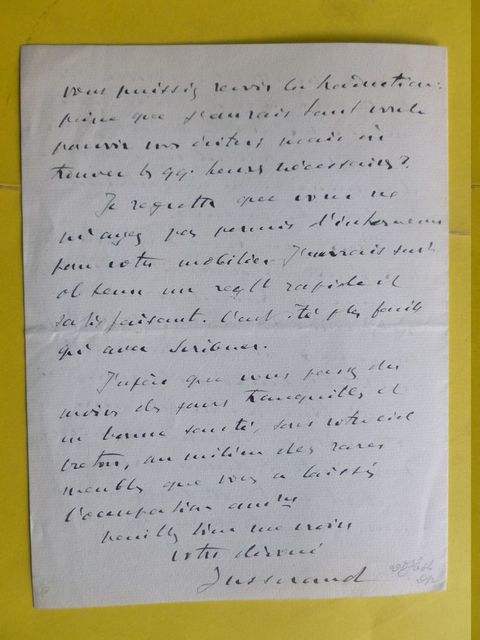 vous puissiez revoir la traduction:
peine que j'aurais tant voulu
pouvoir vous éviter, mais où
trouver les qq. heures nécessaires?
Je regrette que vous ne
m'ayez pas permis d'intervenir
pour votre mobilier. J'aurais
obtenu un regl^t rapide et
satisfaisant. C'eut été plus facile
qu'avec Scribner.
J'espère que vous passez du
moins des jours tranquilles et
en bonne santé, sous votre ciel
breton, au milieu des rares
meubles que vous a laissés
l'occupation
veuillez bien me croire
votre dévoué
Jusserand